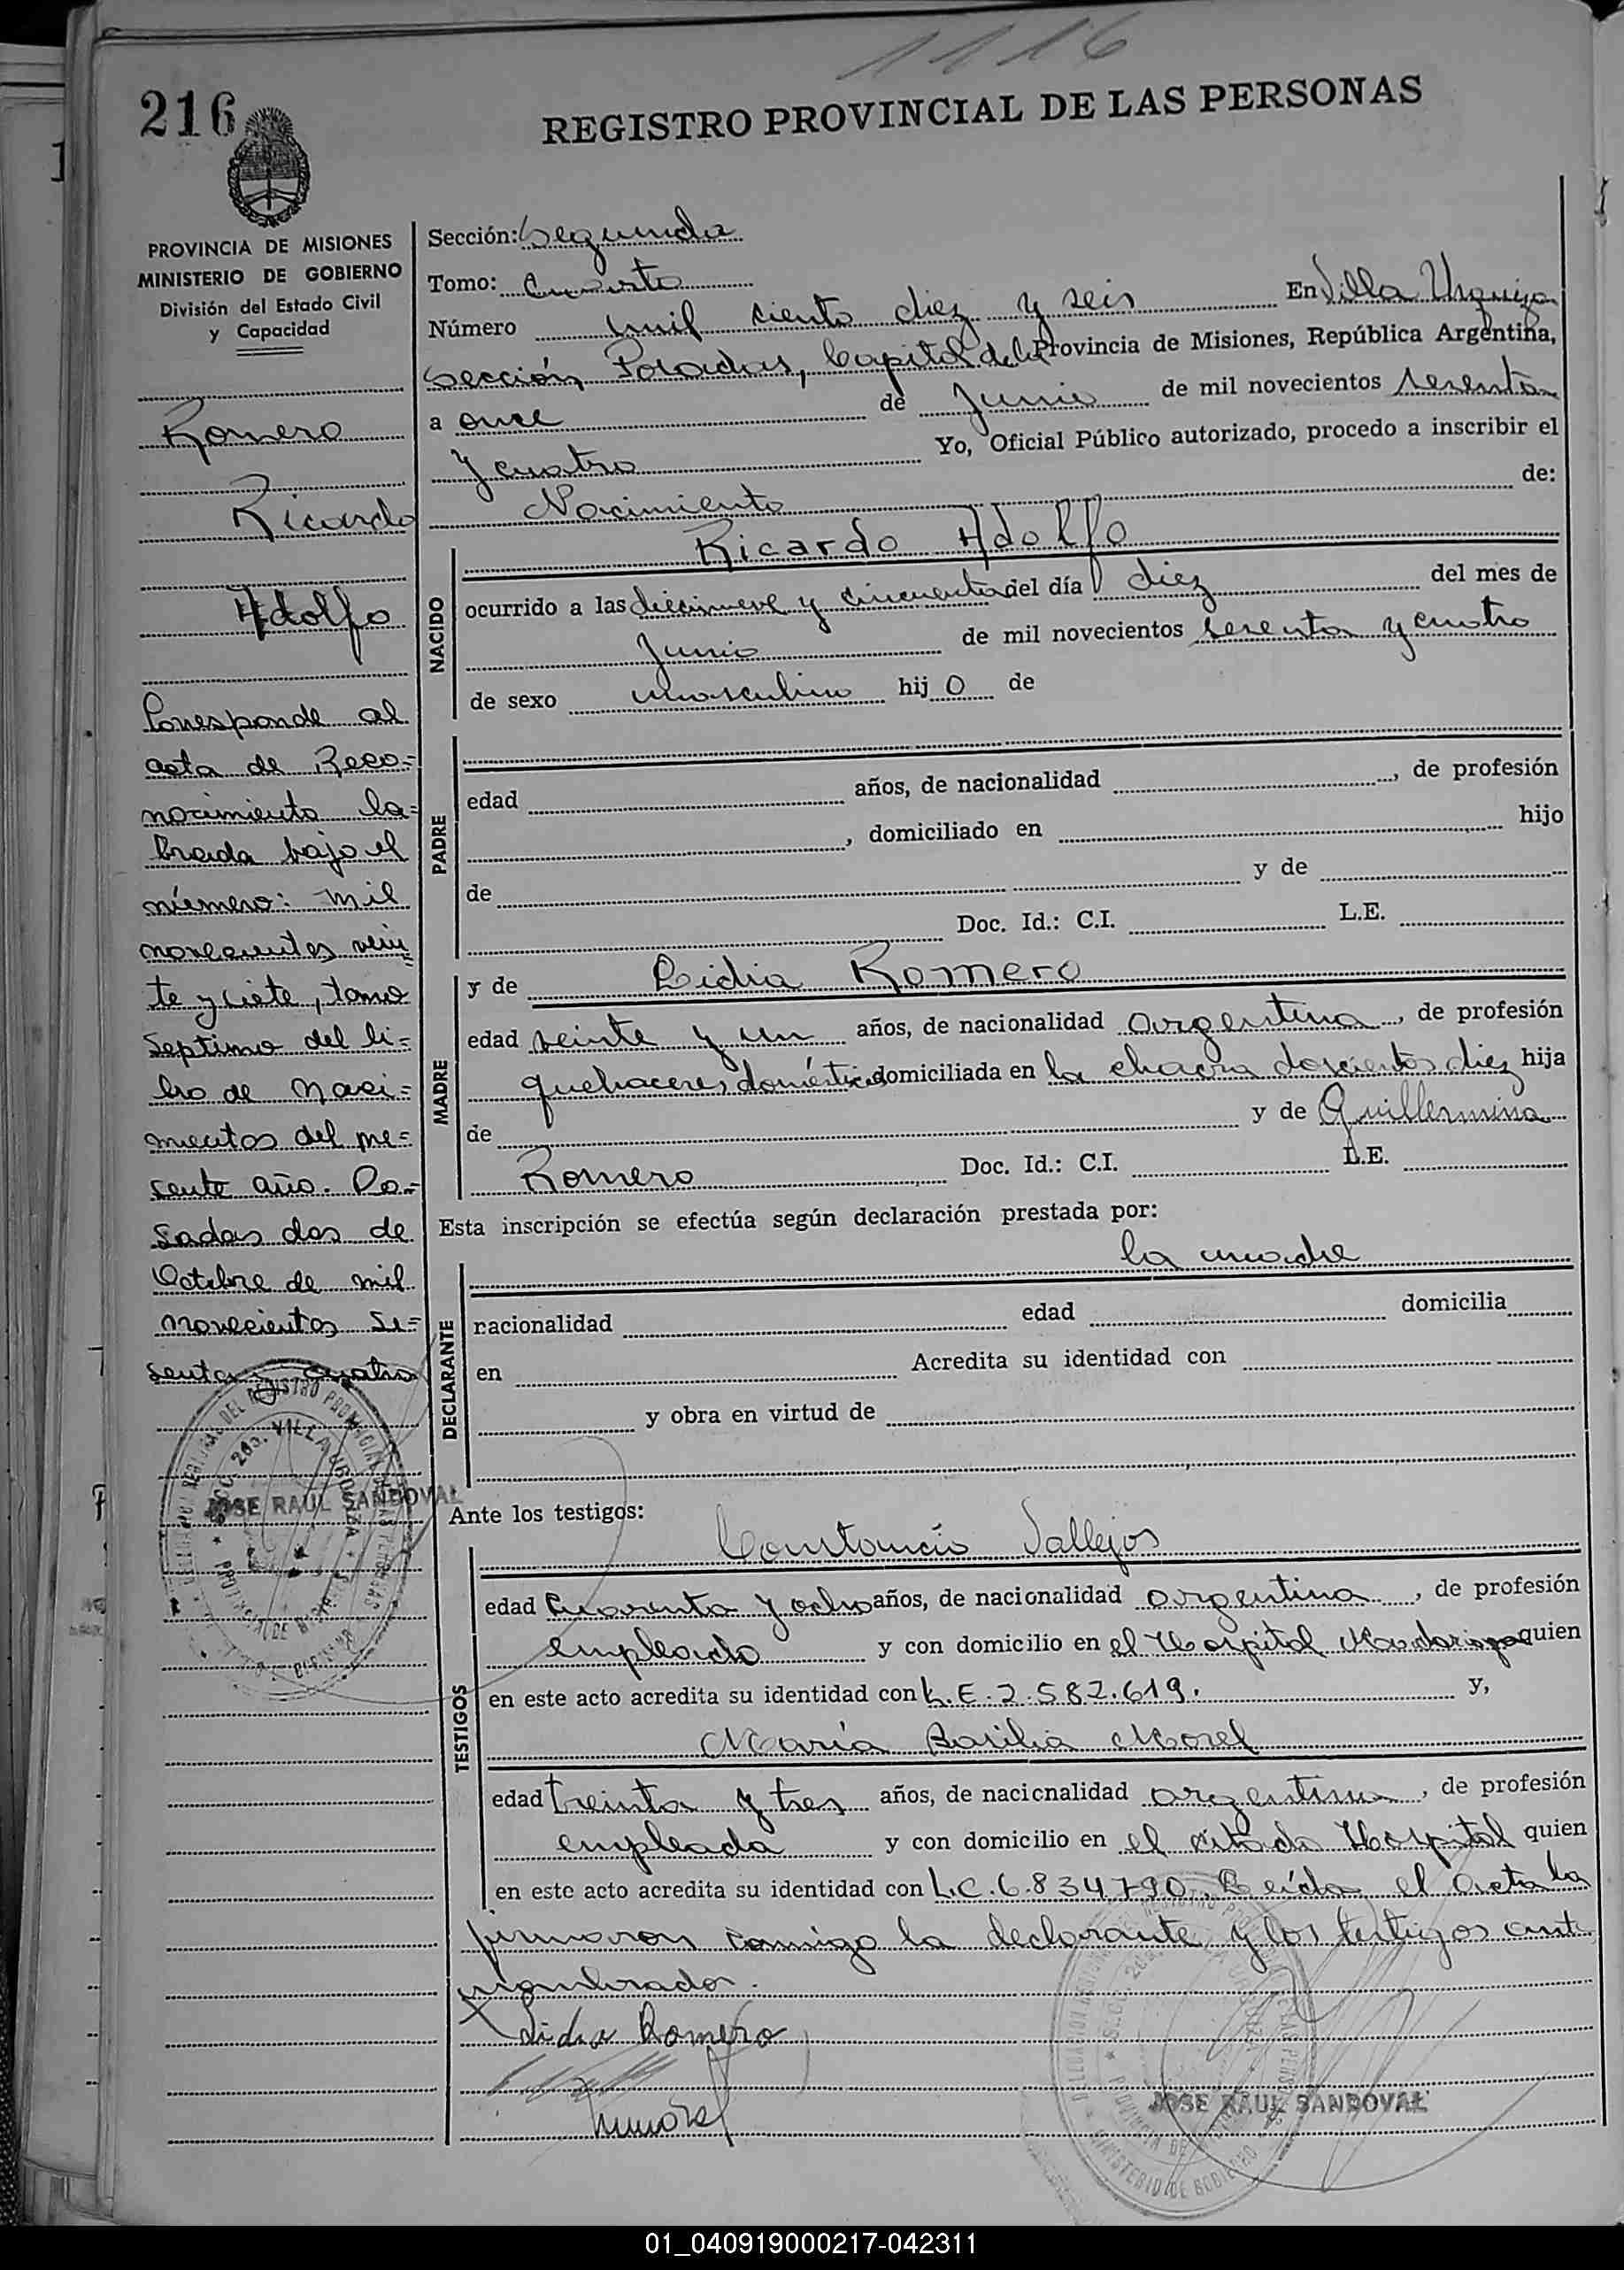 1116
216
REGISTRO PROVINCIAL DE LAS PERSONAS
PROVINCIA DE MISIONES
MINISTERIO DE GOBIERNO
División del Estado Civil
y Capacidad
Romero
Ricardo
Adolfo
Corresponde al
acta de Reco=
nocimiento la=
brada bajo el
número: mil
novecientos vein=
te y siete, tomo
Septimo del li=
bro de Naci=
mientos del pre=
sente año. Po=
sadas dos de
Octubre de mil
novecientos se=
senta y cuatro
JOSE RAUL SANDOVAL
Sección: Segunda
Tomo: Cuarto
Número mil ciento diez y seis En Villa Urquiza
Sección, Posadas, Capital de la Provincia de Misiones, República Argentina,
a once de Junio de mil novecientos sesenta
y cuatro Yo, Oficial Público autorizado, procedo a inscribir el
Nacimiento de:
NACIDO
Ricardo Adolfo
ocurrido a las diecinueve y cincuenta del día diez del mes de
Junio de mil novecientos sesenta y cuatro
de sexo masculino hijo de
PADRE
edad años, de nacionalidad , de profesión
, domiciliado en hijo
de y de
Doc. Id.: C.I. L.E.
MADRE
y de Lidia Romero
edad veinte y un años, de nacionalidad argentina, de profesión
quehaceres domésticos domiciliada en la chacra doscientos diez hija
de y de Guillermina
Romero Doc. Id.: C.I. L.E.
Esta inscripción se efectúa según declaración prestada por:
la madre
DECLARANTE
nacionalidad edad domicilia
en Acredita su identidad con
y obra en virtud de
Ante los testigos:
TESTIGOS
Constancio Vallejos
edad Cuarenta y ocho años, de nacionalidad argentina, de profesión
empleado y con domicilio en el Hospital Madariaga quien
en este acto acredita su identidad con L.E. 2.582.619. y,
María Basilia Morel
edad treinta y tres años, de nacionalidad argentina, de profesión
empleada y con domicilio en el citado Hospital quien
en este acto acredita su identidad con L.C. 6.834.790. Leída el Acta la
firmaron conmigo la declarante y los testigos ante
nombrados.
Lidia Romero
JOSE RAUL SANDOVAL
01_040919000217-042311